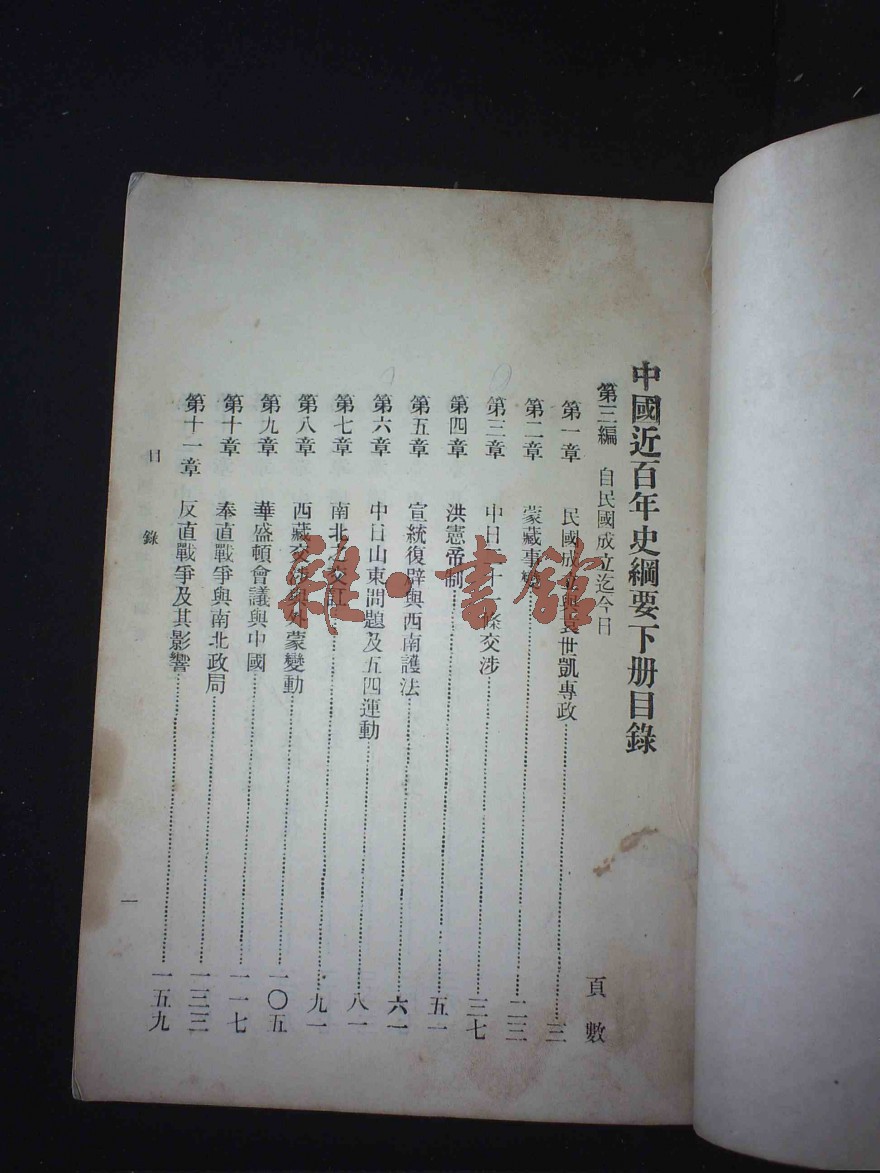 中國近百年史綱要下册目錄
第三編 自民國成立迄今日 頁數
第一章 民國成立與袁世凱專政 三
第二章 蒙藏事變 二三
第三章 中日二十一條交涉 三七
第四章 洪憲帝制 五一
第五章 宣統復辟與西南護法 六一
第六章 中日山東問題及五四運動 八一
第七章 南北之交訌 九一
第八章 西藏交涉與外蒙變動 一〇五
第九章 華盛頓會議與中國 一一七
第十章 奉直戰爭與南北政局 一三三
第十一章 反直戰爭及其影響 一五九
目錄 一
雜·書館